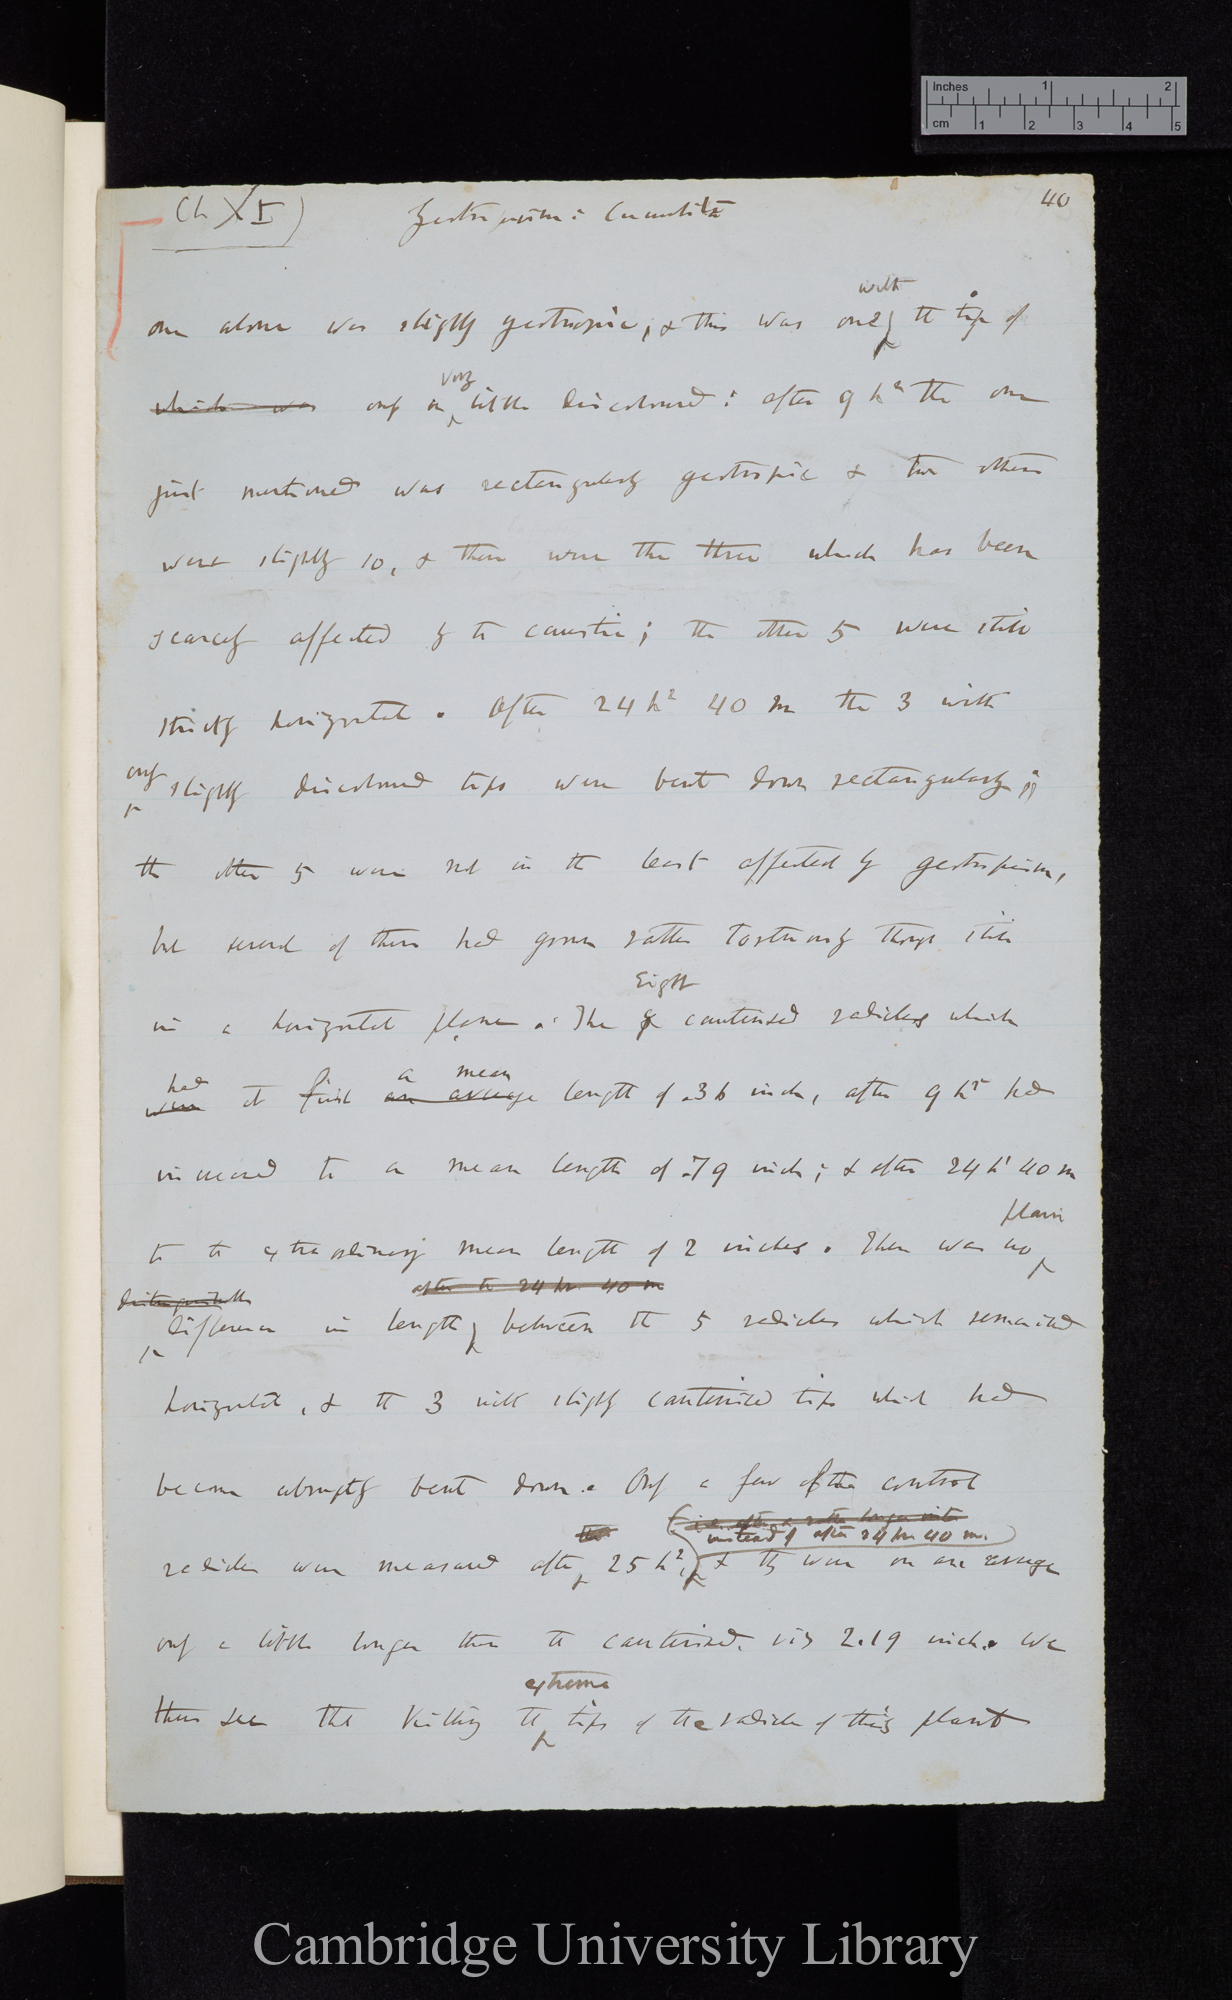 inches 1 2
cm 1 2 3 4 5
Ch XI) Geotropism: Cucurbita 40
with
one alone was slightly geotropic, & this was one, the tip of
very
which was only a little discoloured: after 9 hrs the one
just mentioned was rectangularly geotropic & two others
were slightly so, & these were the three which has been
scarcely affected by the caustic; the other 5 were still
strictly horizontal. After 24 hr 40 m the 3 with
only slightly discoloured tips were bent down rectangularly;
the other 5 were not in the least affected by geotropism,
but several of them had grown rather tortuously though still
Eight
in a horizontal plane. The cauterised radicles which
had a mean
were at first an average length of .36 inch, after 9 hr had
increased to a mean length of .79 inch; & after 24 hr 40 m
plain
to the extraordinary mean length of 2 inches. There was no
distinguishable after the 24 hr. 40 m
difference in length, between the 5 radicles which remained
horizontal, & the 3 with slightly cauterised tips which had
become abruptly bent down. Only a few of the control
the
instead of after 24 hr 40 m.
radicles were measured after 25 hr, & they were on an average
only a little longer than the cauterised, viz 2.19 inch. We
extreme
thus see that killing the tips of the radicle of this plant
Cambridge University Library